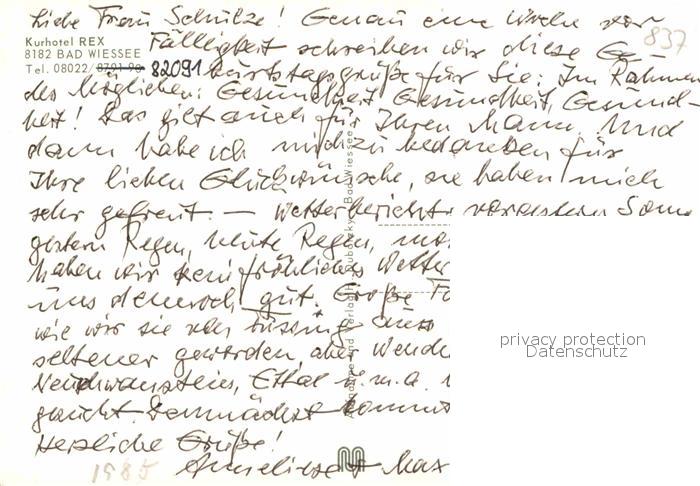 Liebe Frau Schütze! Genau eine Woche vor
837
Kurhotel REX
Fälligkeit schreiben wir diese Ge-
8182 BAD WIESSEE
Tel. 08022/8791-90 82091
burtstagsgrüße für Sie: Im Rahmen
des Möglichen: Gesundheit Gesundheit, Gesund-
heit! Das gilt auch für Ihren Mann. Und
dann habe ich mich zu bedanken für
Ihre lieben Glückwünsche, sie haben mich
sehr gefreut. — Wetterbericht: vorgestern Sonne
gestern Regen, heute Regen, mor
haben wir kein fröhliches Wetter
uns dennoch gut. Große
wie wir sie
seltener geworden, aber
Neuschwanstein, Ettal u.m.a.
Demnächst
Herzliche Grüße!
1985
Anneliese + Max
privacy protection
Datenschutz